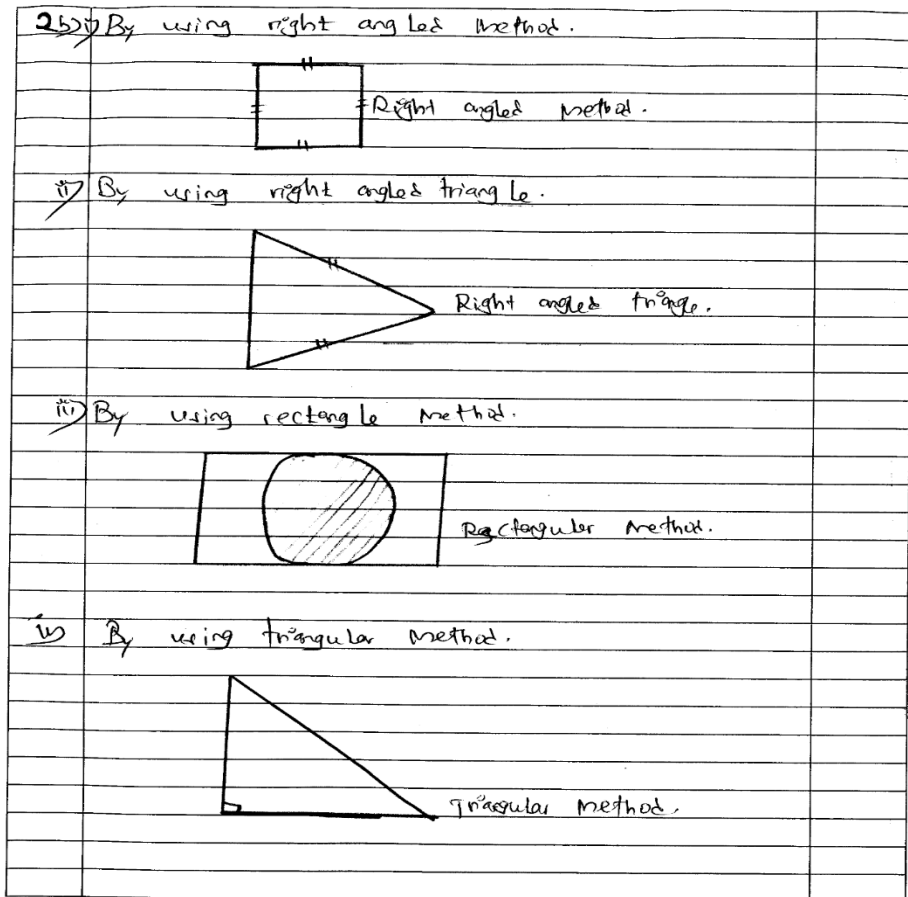 2b)i) By using right angled method.
Right angled method.
ii) By using right angled triangle.
Right angled triagle.
iii) By using rectangle method.
Rectangular method.
iv) By using triangular method.
Triangular method.